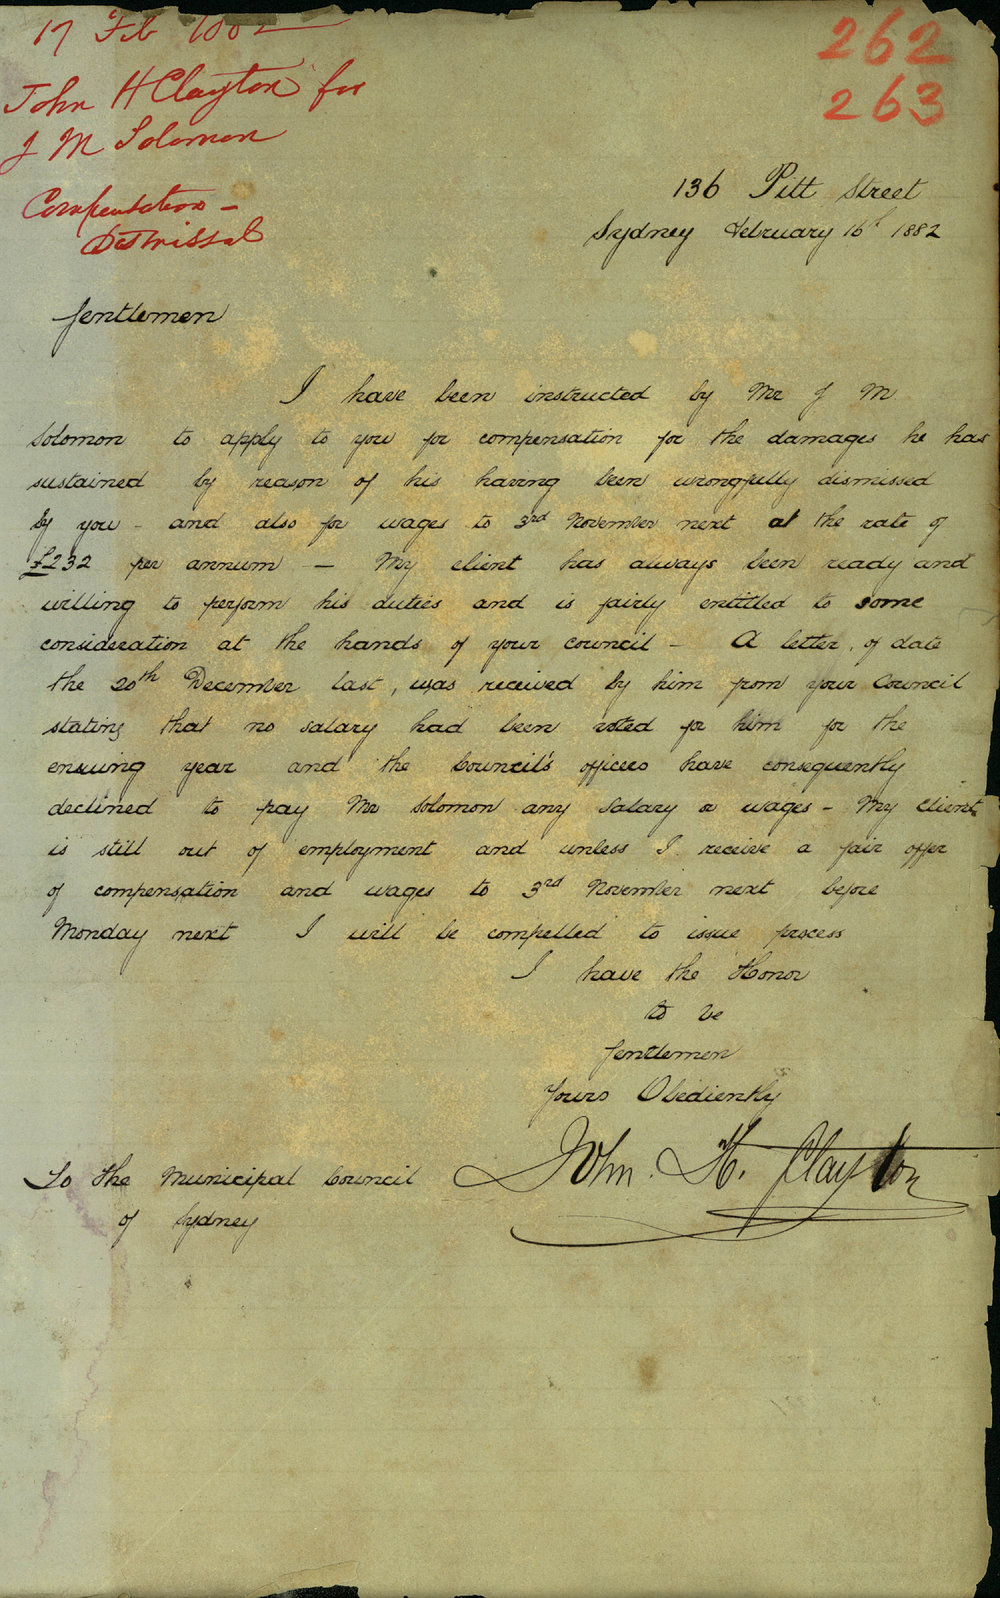 17 Feb 1882
John H Clayton for
J M Solomon
Compensation –
Dismissal
262
263
136 Pitt Street
Sydney February 16th 1882
Gentlemen
I have been instructed by Mr J M
Solomon to apply to you for compensation for the damages he has
sustained by reason of his having been wrongfully dismissed
by you – and also for wages to 3rd November next at the rate of
£232 per annum – My client has always been ready and
willing to perform his duties and is fairly entitled to some
consideration at the hands of your council – A letter, of date
the 20th December last, was received by him from your Council
stating that no salary had been voted for him for the
ensuing year and the Council's officers have consequently
declined to pay Mr Solomon any salary or wages – My client
is still out of employment and unless I receive a fair offer
of compensation and wages to 3rd November next before
Monday next I will be compelled to issue process
I have the Honor
to be
Gentlemen
Yours Obediently
John. H. Clayton
To the Municipal Council
of Sydney